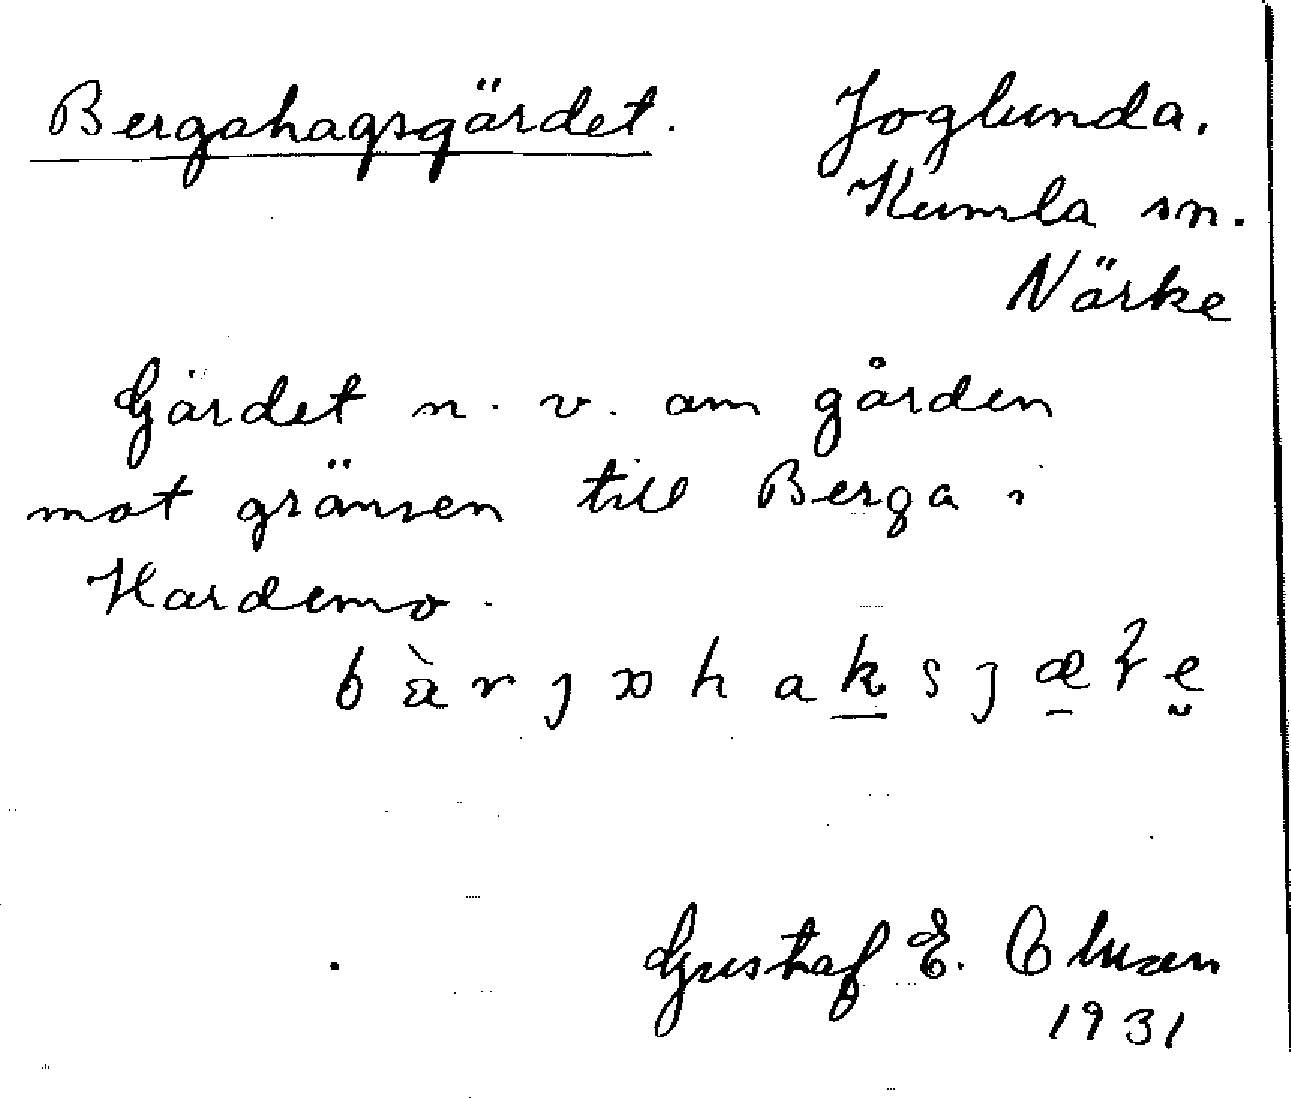 Bergahagsgärdet. Joglunda.
Kumla sn.
Närke
Gärdet n. v. om gården
mot gränsen till Berga i
Hardemo.
bàrjxhaksjæṭe
Gustaf E.
1931